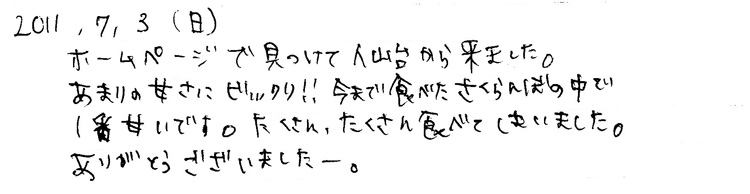 2011, 7, 3 (日)
ホームページで見つけて仙台から来ました。
あまりの甘さにビックリ!! 今まで食べたさくらんぼの中で
1番甘いです。たくさん、たくさん食べてしまいました。
ありがとうございましたー。